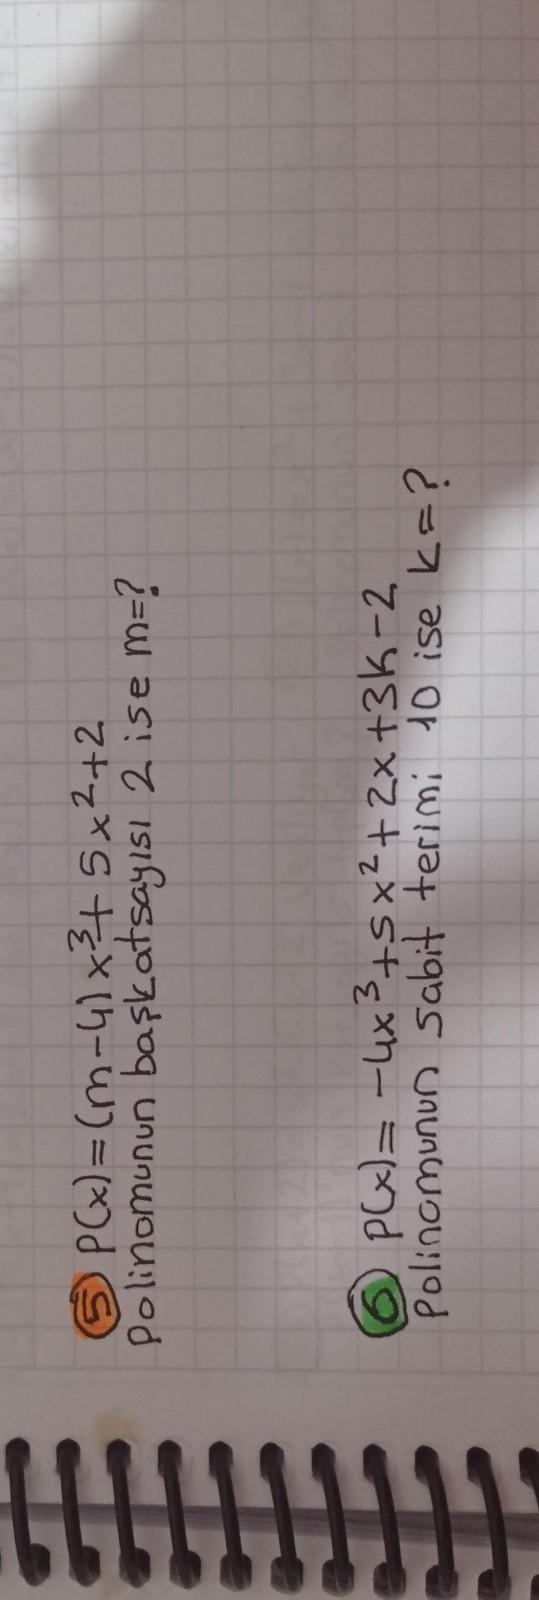 5 P(x)=(m-4)x³+5x²+2
Polinomunun başkatsayısı 2 ise m=?
6 P(x)= -4x³+5x²+2x+3k-2
Polinomunun sabit terimi 10 ise k=?